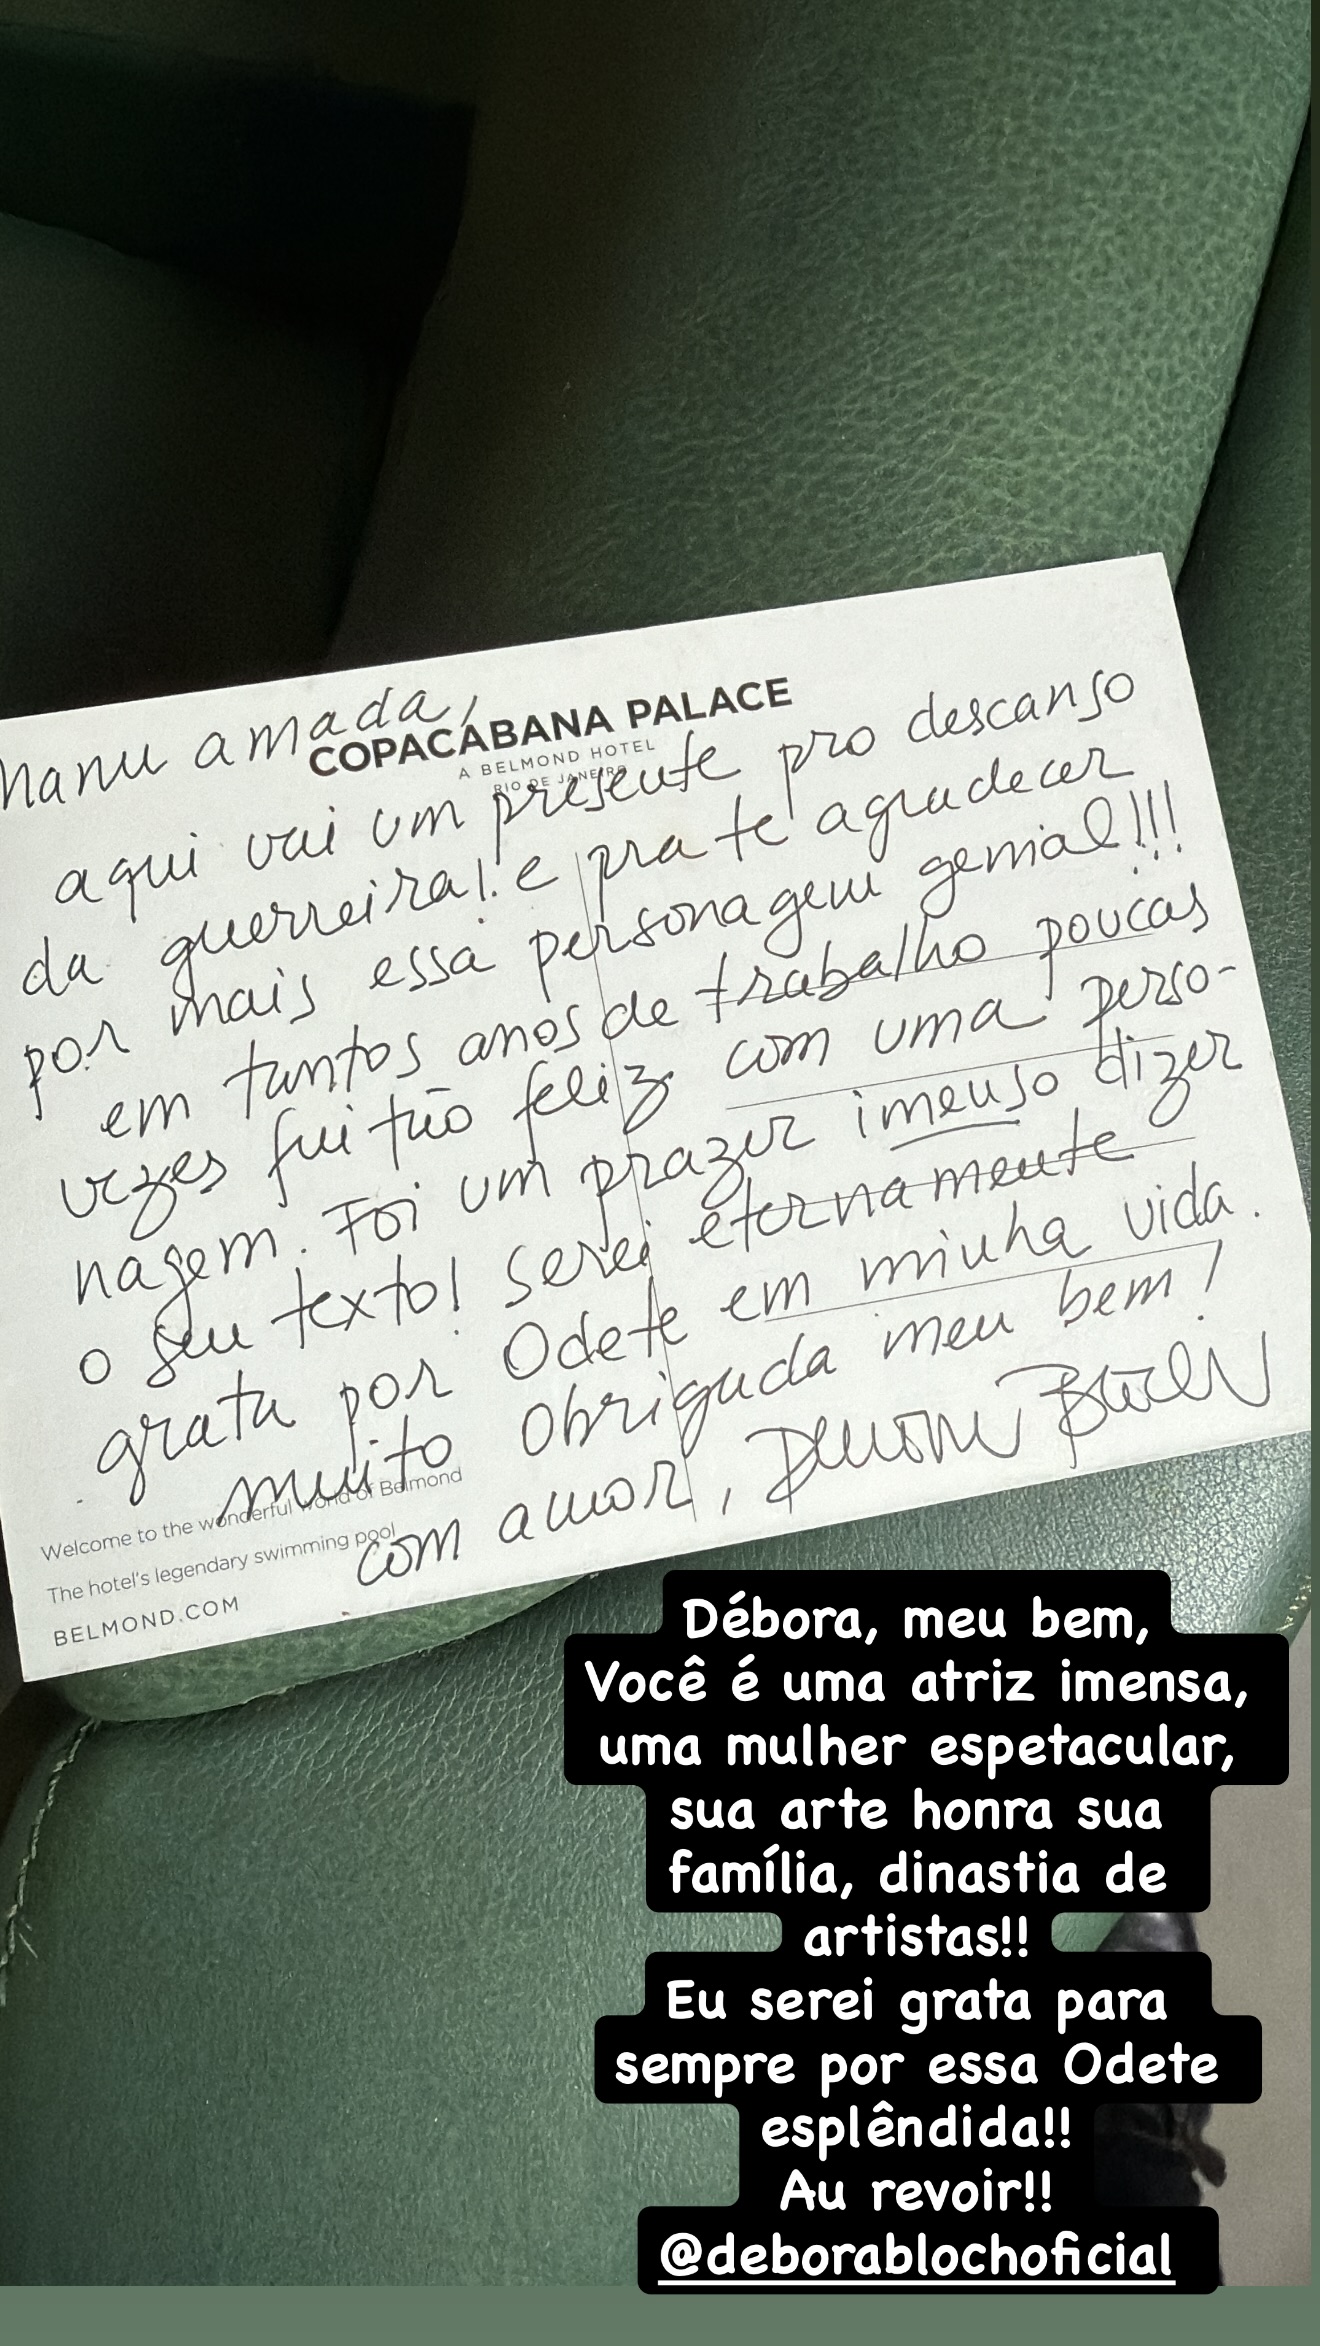 Manu amada,
COPACABANA PALACE
A BELMOND HOTEL
RIO DE JANEIRO
aqui vai um presente pro descanso
da guerreira! e pra te agradecer
por mais essa personagem genial!!!
em tantos anos de trabalho poucas
vezes fui tão feliz com uma perso-
nagem. Foi um prazer imenso dizer
o seu texto! Serei eternamente
grata por Odete em minha vida.
muito obrigada meu bem!
com amor, Debora Bloch
Welcome to the wonderful world of Belmond
The hotel's legendary swimming pool
BELMOND.COM
Débora, meu bem,
Você é uma atriz imensa,
uma mulher espetacular,
sua arte honra sua
família, dinastia de
artistas!!
Eu serei grata para
sempre por essa Odete
esplêndida!!
Au revoir!!
@deborablochoficial